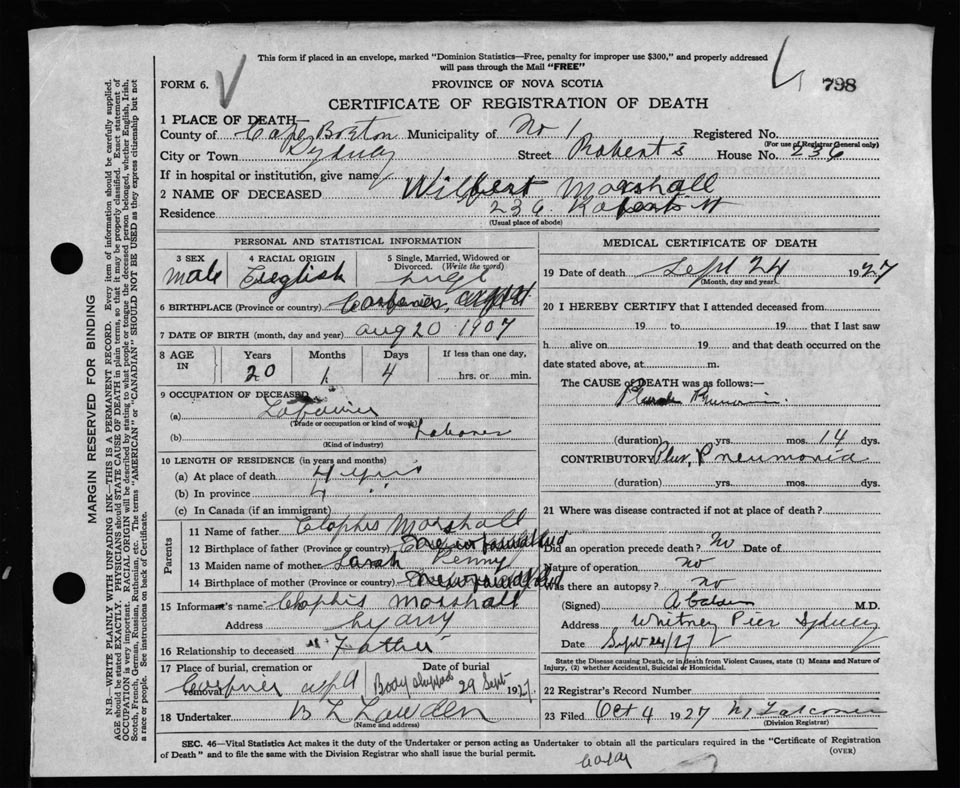 This form if placed in an envelope, marked "Dominion Statistics—Free, penalty for improper use $300," and properly addressed
will pass through the Mail "FREE"
FORM 6.
PROVINCE OF NOVA SCOTIA
798
CERTIFICATE OF REGISTRATION OF DEATH
1 PLACE OF DEATH—
County of Cape Breton Municipality of No 1 Registered No.
(For use of Registrar General only)
City or Town Sydney Street Robert's House No. 236
If in hospital or institution, give name
2 NAME OF DECEASED Wilbert Marshall
Residence 236 Roberts St
(Usual place of abode)
PERSONAL AND STATISTICAL INFORMATION
3 SEX 4 RACIAL ORIGIN 5 Single, Married, Widowed or Divorced. (Write the word)
Male English
6 BIRTHPLACE (Province or country)
7 DATE OF BIRTH (month, day and year) Aug 20 1907
8 AGE IN Years Months Days If less than one day,
20 1 4 hrs. or min.
9 OCCUPATION OF DECEASED
(a)
(Trade or occupation or kind of work)
(b) Laborer
(Kind of industry)
10 LENGTH OF RESIDENCE (in years and months)
(a) At place of death 4 yrs
(b) In province 4 "
(c) In Canada (if an immigrant)
Parents
11 Name of father Clophis Marshall
12 Birthplace of father (Province or country) Newfoundland
13 Maiden name of mother Sarah Penny
14 Birthplace of mother (Province or country) Newfoundland
15 Informant's name Clophis Marshall
Address
16 Relationship to deceased Father
17 Place of burial, cremation or removal Date of burial
Body shipped 29 Sept 1927.
18 Undertaker
(Name and address)
MEDICAL CERTIFICATE OF DEATH
19 Date of death Sept 24 1927
(Month, day and year)
20 I HEREBY CERTIFY that I attended deceased from
19 to 19 that I last saw
h alive on 19 and that death occurred on the
date stated above, at m.
The CAUSE of DEATH was as follows:—
(duration) yrs. mos. 14 dys.
CONTRIBUTORY Pneumonia
(duration) yrs. mos. dys.
21 Where was disease contracted if not at place of death?
Did an operation precede death? No Date of
Nature of operation No
Was there an autopsy? No
(Signed) M.D.
Address Whitney Pier Sydney
Date Sept 24/27
State the Disease causing Death, or in death from Violent Causes, state (1) Means and Nature of
Injury, (2) whether Accidental, Suicidal or Homicidal.
22 Registrar's Record Number
23 Filed Oct 4 1927
(Division Registrar)
SEC. 46—Vital Statistics Act makes it the duty of the Undertaker or person acting as Undertaker to obtain all the particulars required in the "Certificate of Registration
of Death" and to file the same with the Division Registrar who shall issue the burial permit.
(OVER)
MARGIN RESERVED FOR BINDING
N.B.—WRITE PLAINLY WITH UNFADING INK—THIS IS A PERMANENT RECORD. Every item of information should be carefully supplied.
AGE should be stated EXACTLY. PHYSICIANS should STATE CAUSE OF DEATH in plain terms, so that it may be properly classified. Exact statement of
OCCUPATION is very important. RACIAL ORIGIN will be described by stating to what people or tongue the deceased person belonged, whether English, Irish,
Scotch, French, German, Russian, Ruthenian, etc. The terms "AMERICAN" or "CANADIAN" SHOULD NOT BE USED as they express citizenship but not
a race or people. See instructions on back of Certificate.